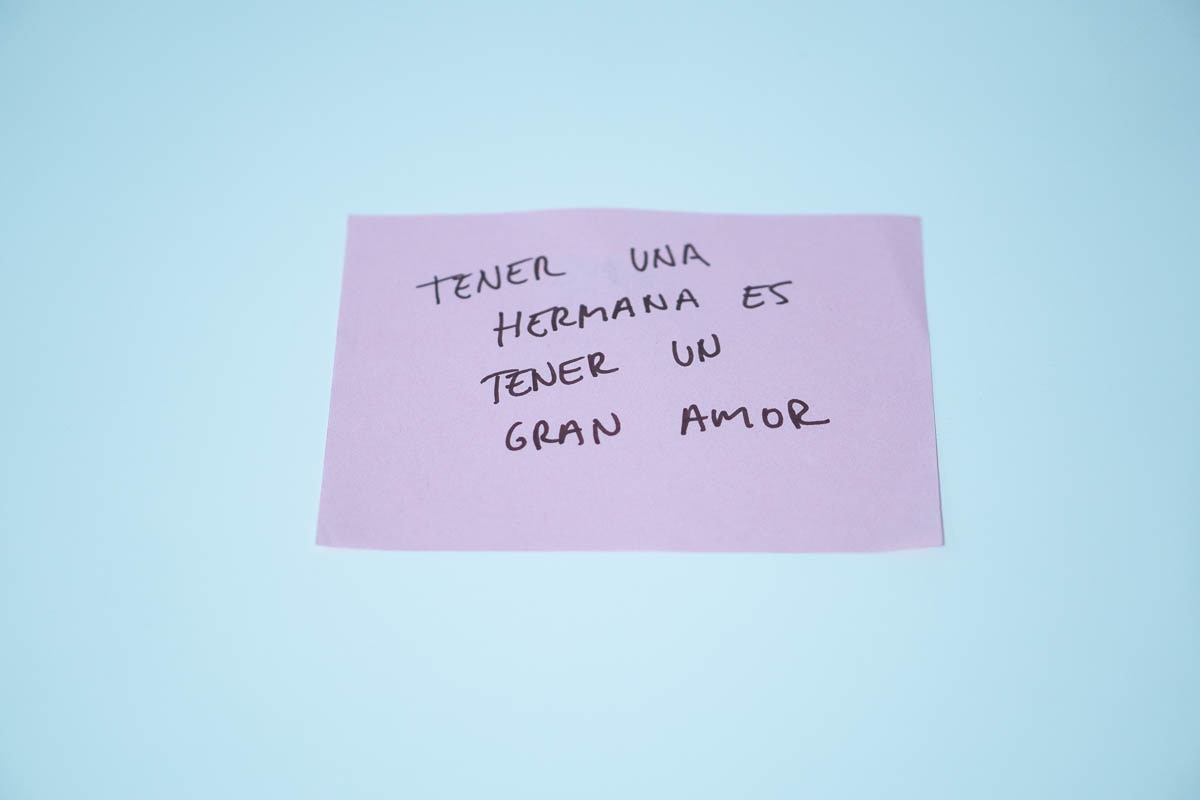 TENER UNA
HERMANA ES
TENER UN
GRAN AMOR